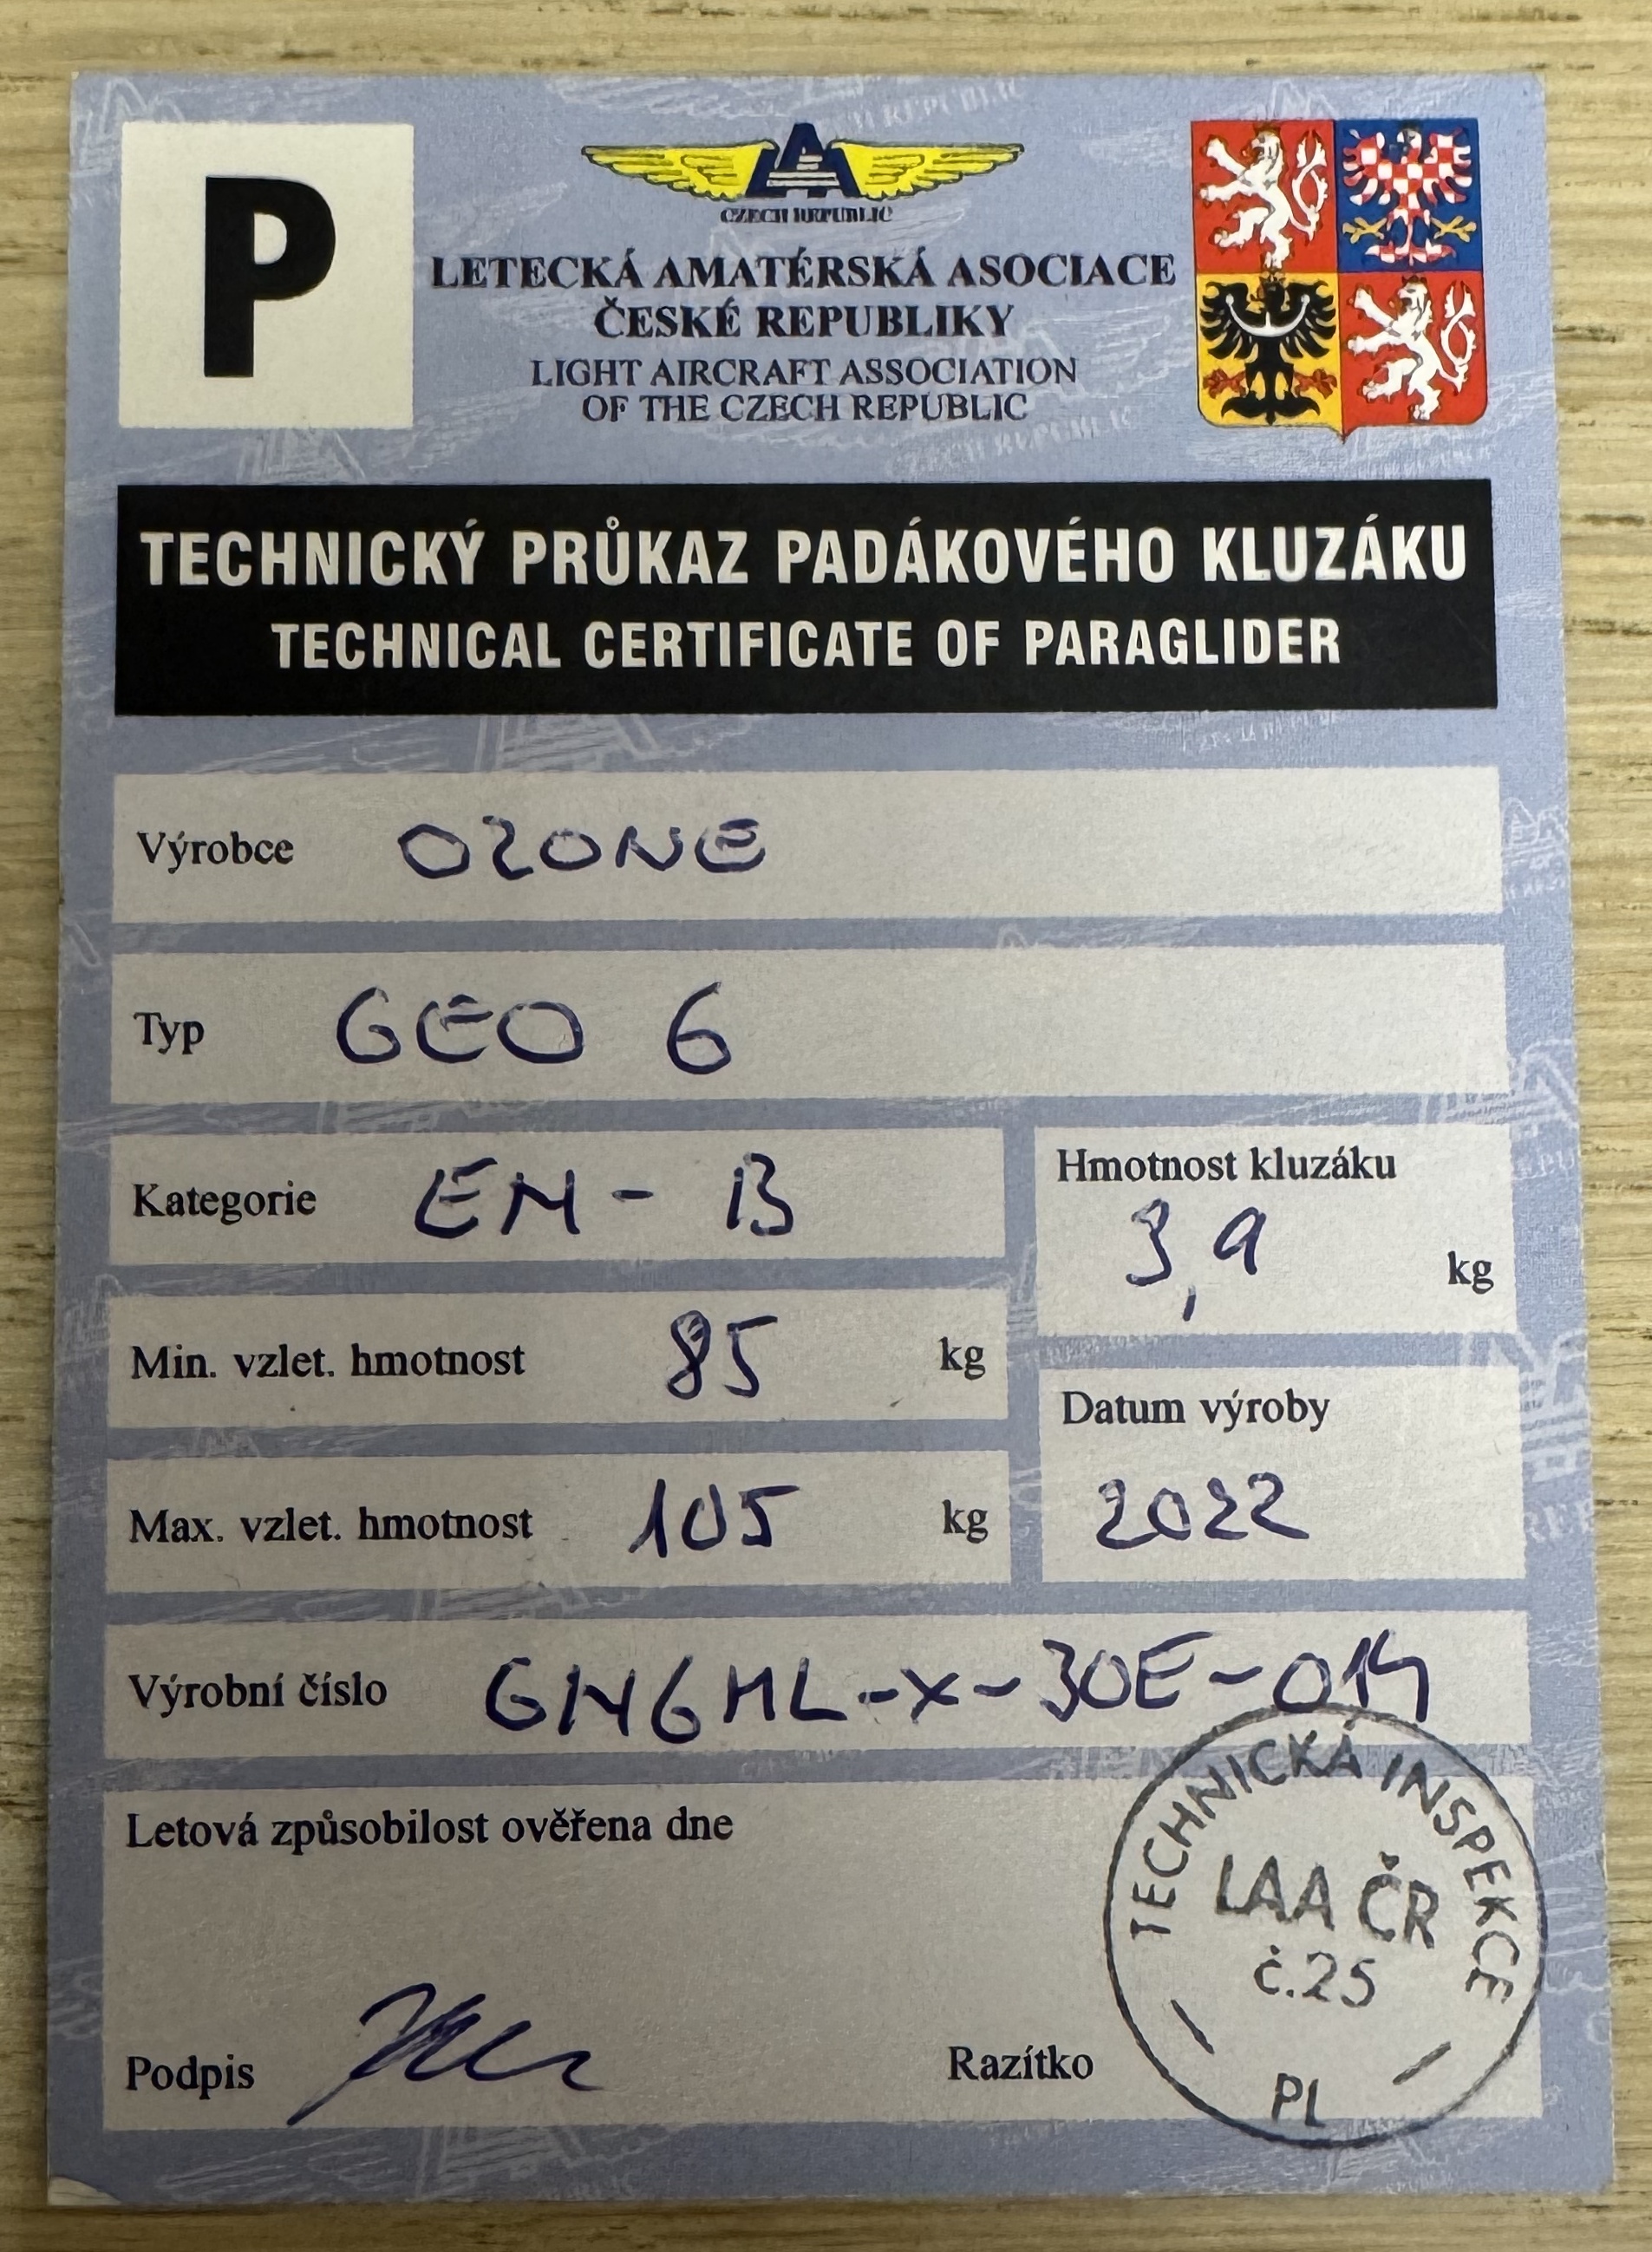 P
CZECH REPUBLIC
LETECKÁ AMATÉRSKÁ ASOCIACE
ČESKÉ REPUBLIKY
LIGHT AIRCRAFT ASSOCIATION
OF THE CZECH REPUBLIC
TECHNICKÝ PRŮKAZ PADÁKOVÉHO KLUZÁKU
TECHNICAL CERTIFICATE OF PARAGLIDER
Výrobce OZONE
Typ GEO 6
Kategorie EN - B
Hmotnost kluzáku
3,9 kg
Min. vzlet. hmotnost 85 kg
Max. vzlet. hmotnost 105 kg
Datum výroby
2022
Výrobní číslo
Letová způsobilost ověřena dne
Podpis
Razítko
TECHNICKÁ INSPEKCE
LAA ČR
č.25
PL